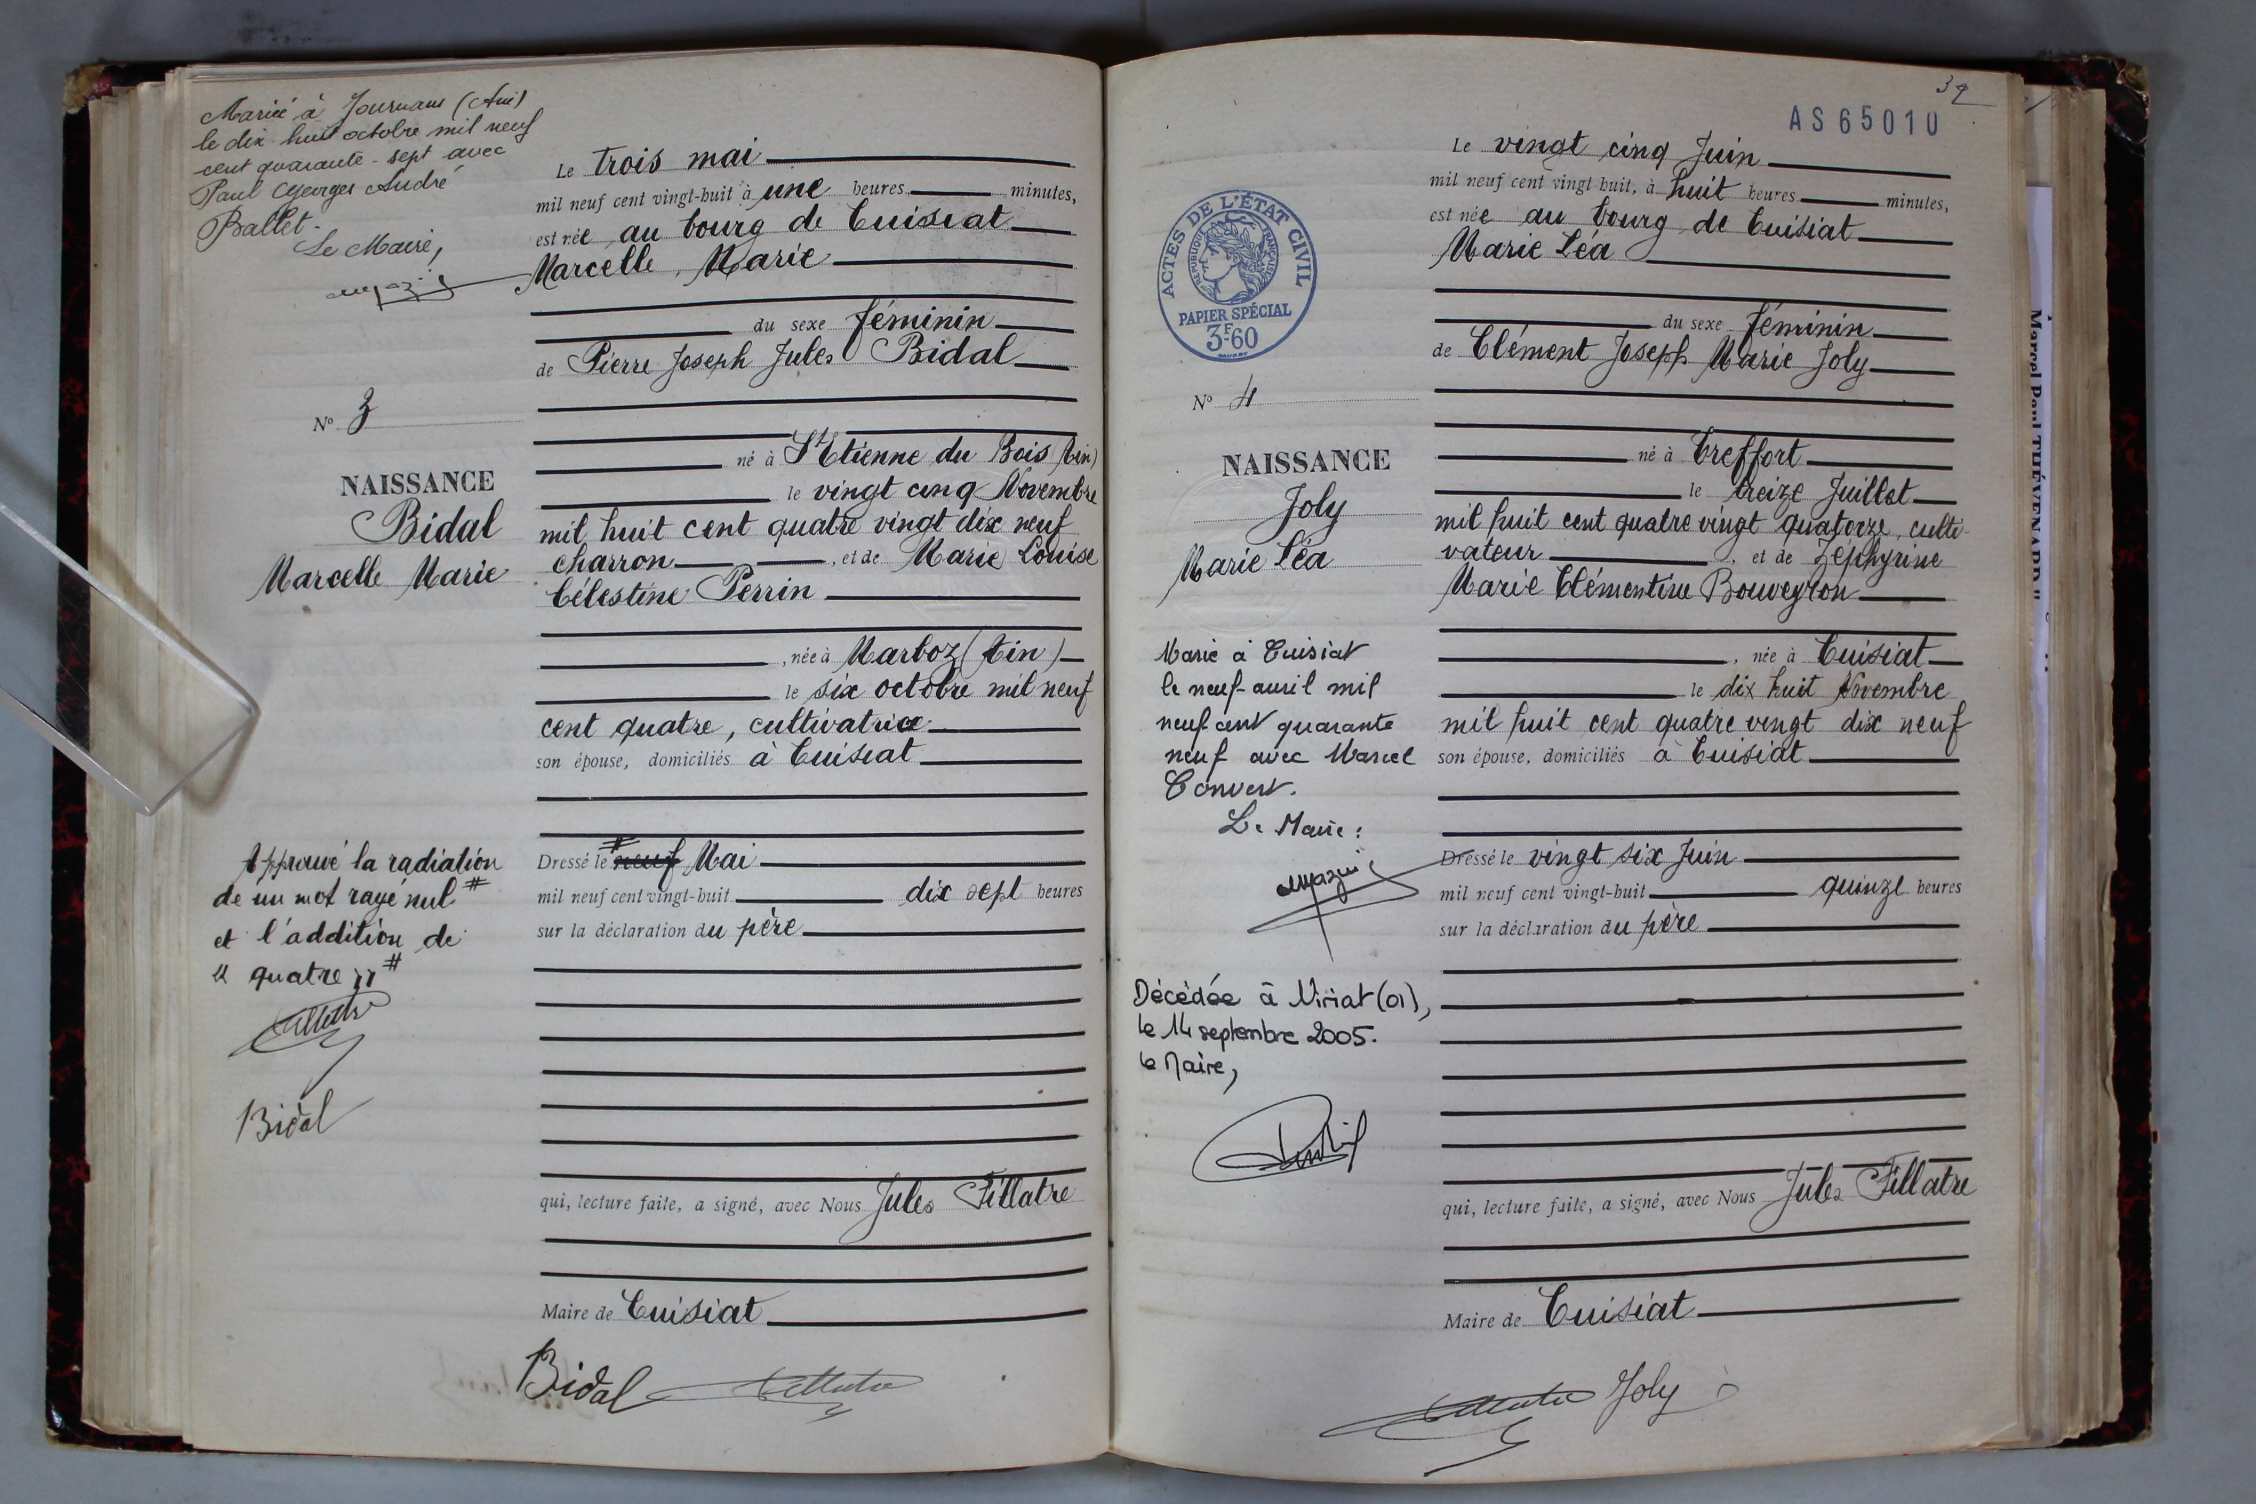 Mariée à Journans (Ain)
le dix huit octobre mil neuf
cent quarante-sept avec
Paul Georges André
Ballet.
Le Maire,
Le trois mai
mil neuf cent vingt-huit à une heures minutes,
est née au bourg de Cuisiat
Marcelle, Marie
du sexe féminin
de Pierre Joseph Jules Bidal
N° 3
NAISSANCE
Bidal
Marcelle Marie
né à St Etienne du Bois (Ain)
le vingt cinq Novembre
mil huit cent quatre vingt dix neuf
charron, et de Marie Louise
Célestine Perrin
, née à Marboz (Ain)
le six octobre mil neuf
cent quatre, cultivatrice
son épouse, domiciliés à Cuisiat
Approuvé la radiation
de un mot rayé nul #
et l'addition de
" quatre " #
Bidal
Dressé le # neuf Mai
mil neuf cent vingt-huit dix sept heures
sur la déclaration du père
qui, lecture faite, a signé, avec Nous Jules Fillatre
Maire de Cuisiat
Bidal
32
AS65010
ACTES DE L'ÉTAT CIVIL
RÉPUBLIQUE FRANÇAISE
PAPIER SPÉCIAL
3F60
Le vingt cinq Juin
mil neuf cent vingt huit, à huit heures minutes,
est née au bourg de Cuisiat
Marie Léa
du sexe féminin
de Clément Joseph Marie Joly
N° 4
NAISSANCE
Joly
Marie Léa
né à Treffort
le treize Juillet
mil huit cent quatre vingt quatorze, culti-
vateur, et de Zéphyrine
Marie Clémentine Bouveyron
, née à Cuisiat
le dix huit Novembre
mil huit cent quatre vingt dix neuf
son épouse, domiciliés à Cuisiat
Marié à Cuisiat
le neuf avril mil
neuf cent quarante
neuf avec Marcel
Convert.
Le Maire :
Dressé le vingt six Juin
mil neuf cent vingt-huit quinze heures
sur la déclaration du père
Décédée à Viriat (01),
le 14 septembre 2005.
Le Maire,
qui, lecture faite, a signé, avec Nous Jules Fillatre
Maire de Cuisiat
Joly
Marcel Paul THÉVENARD